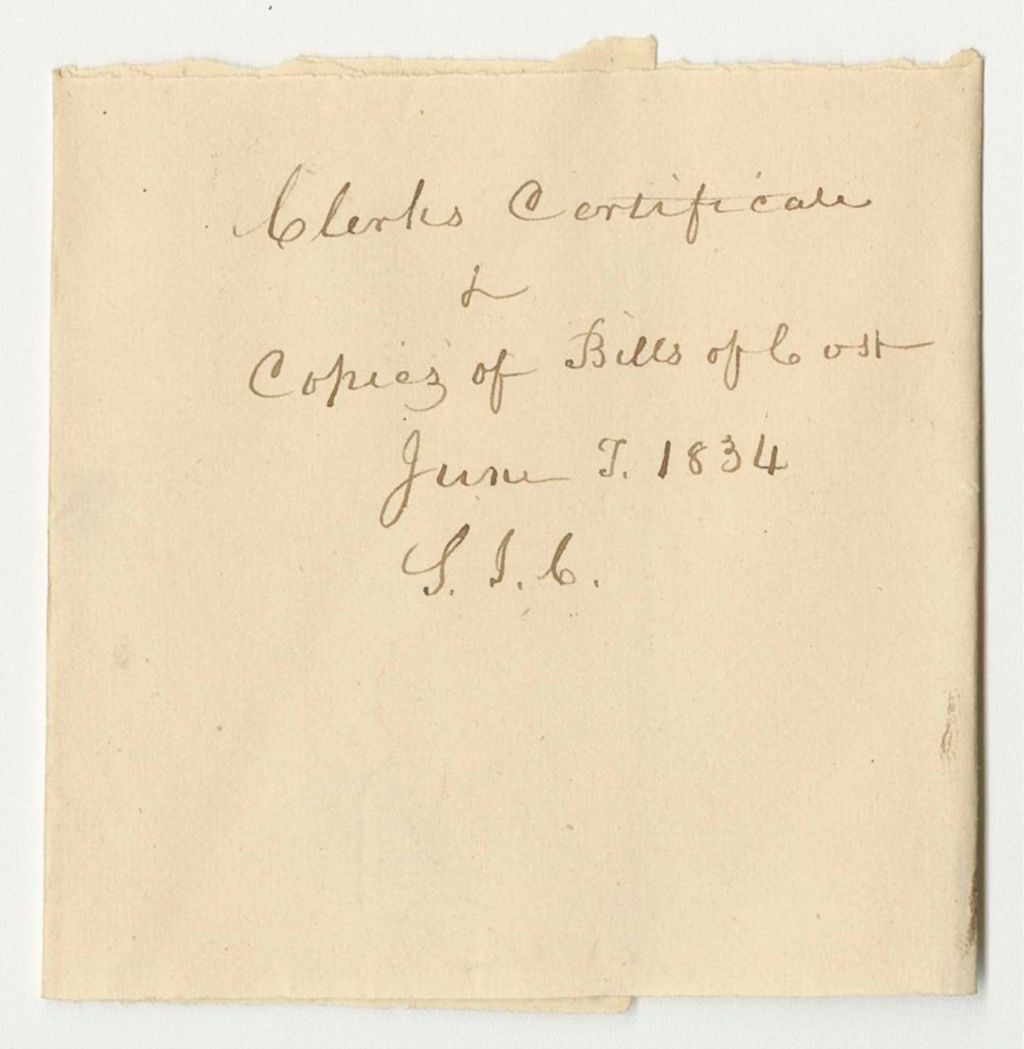 Clerks Certificate
&
Copies of Bills of Cost
June T. 1834
S. J. C.